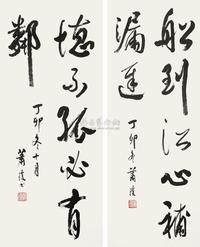 船到江心補
漏遲
丁卯冬蕭
德不孤必有
鄰
丁卯冬十月
蕭